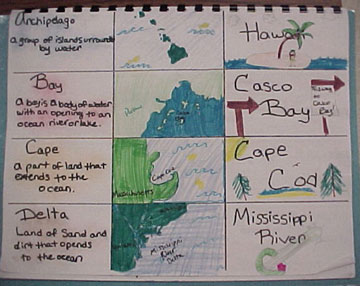 Archipelago
a group of islands surrounded
by water
Hawaii
Bay
a bay is a body of water
with an opening to an
ocean river or lake.
Casco
Bay
Cape
a part of land that
extends to the
ocean.
Cape Cod
Massachusetts
Cape
Cod
Delta
Land of Sand and
dirt that opens
to the ocean
Mississippi
River
Delta
Mississippi
River